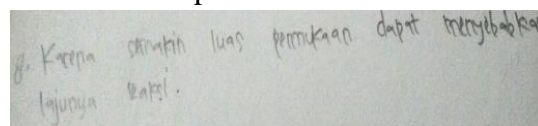 8. Karena semakin luas permukaan dapat menyebabka
lajunya reaksi.